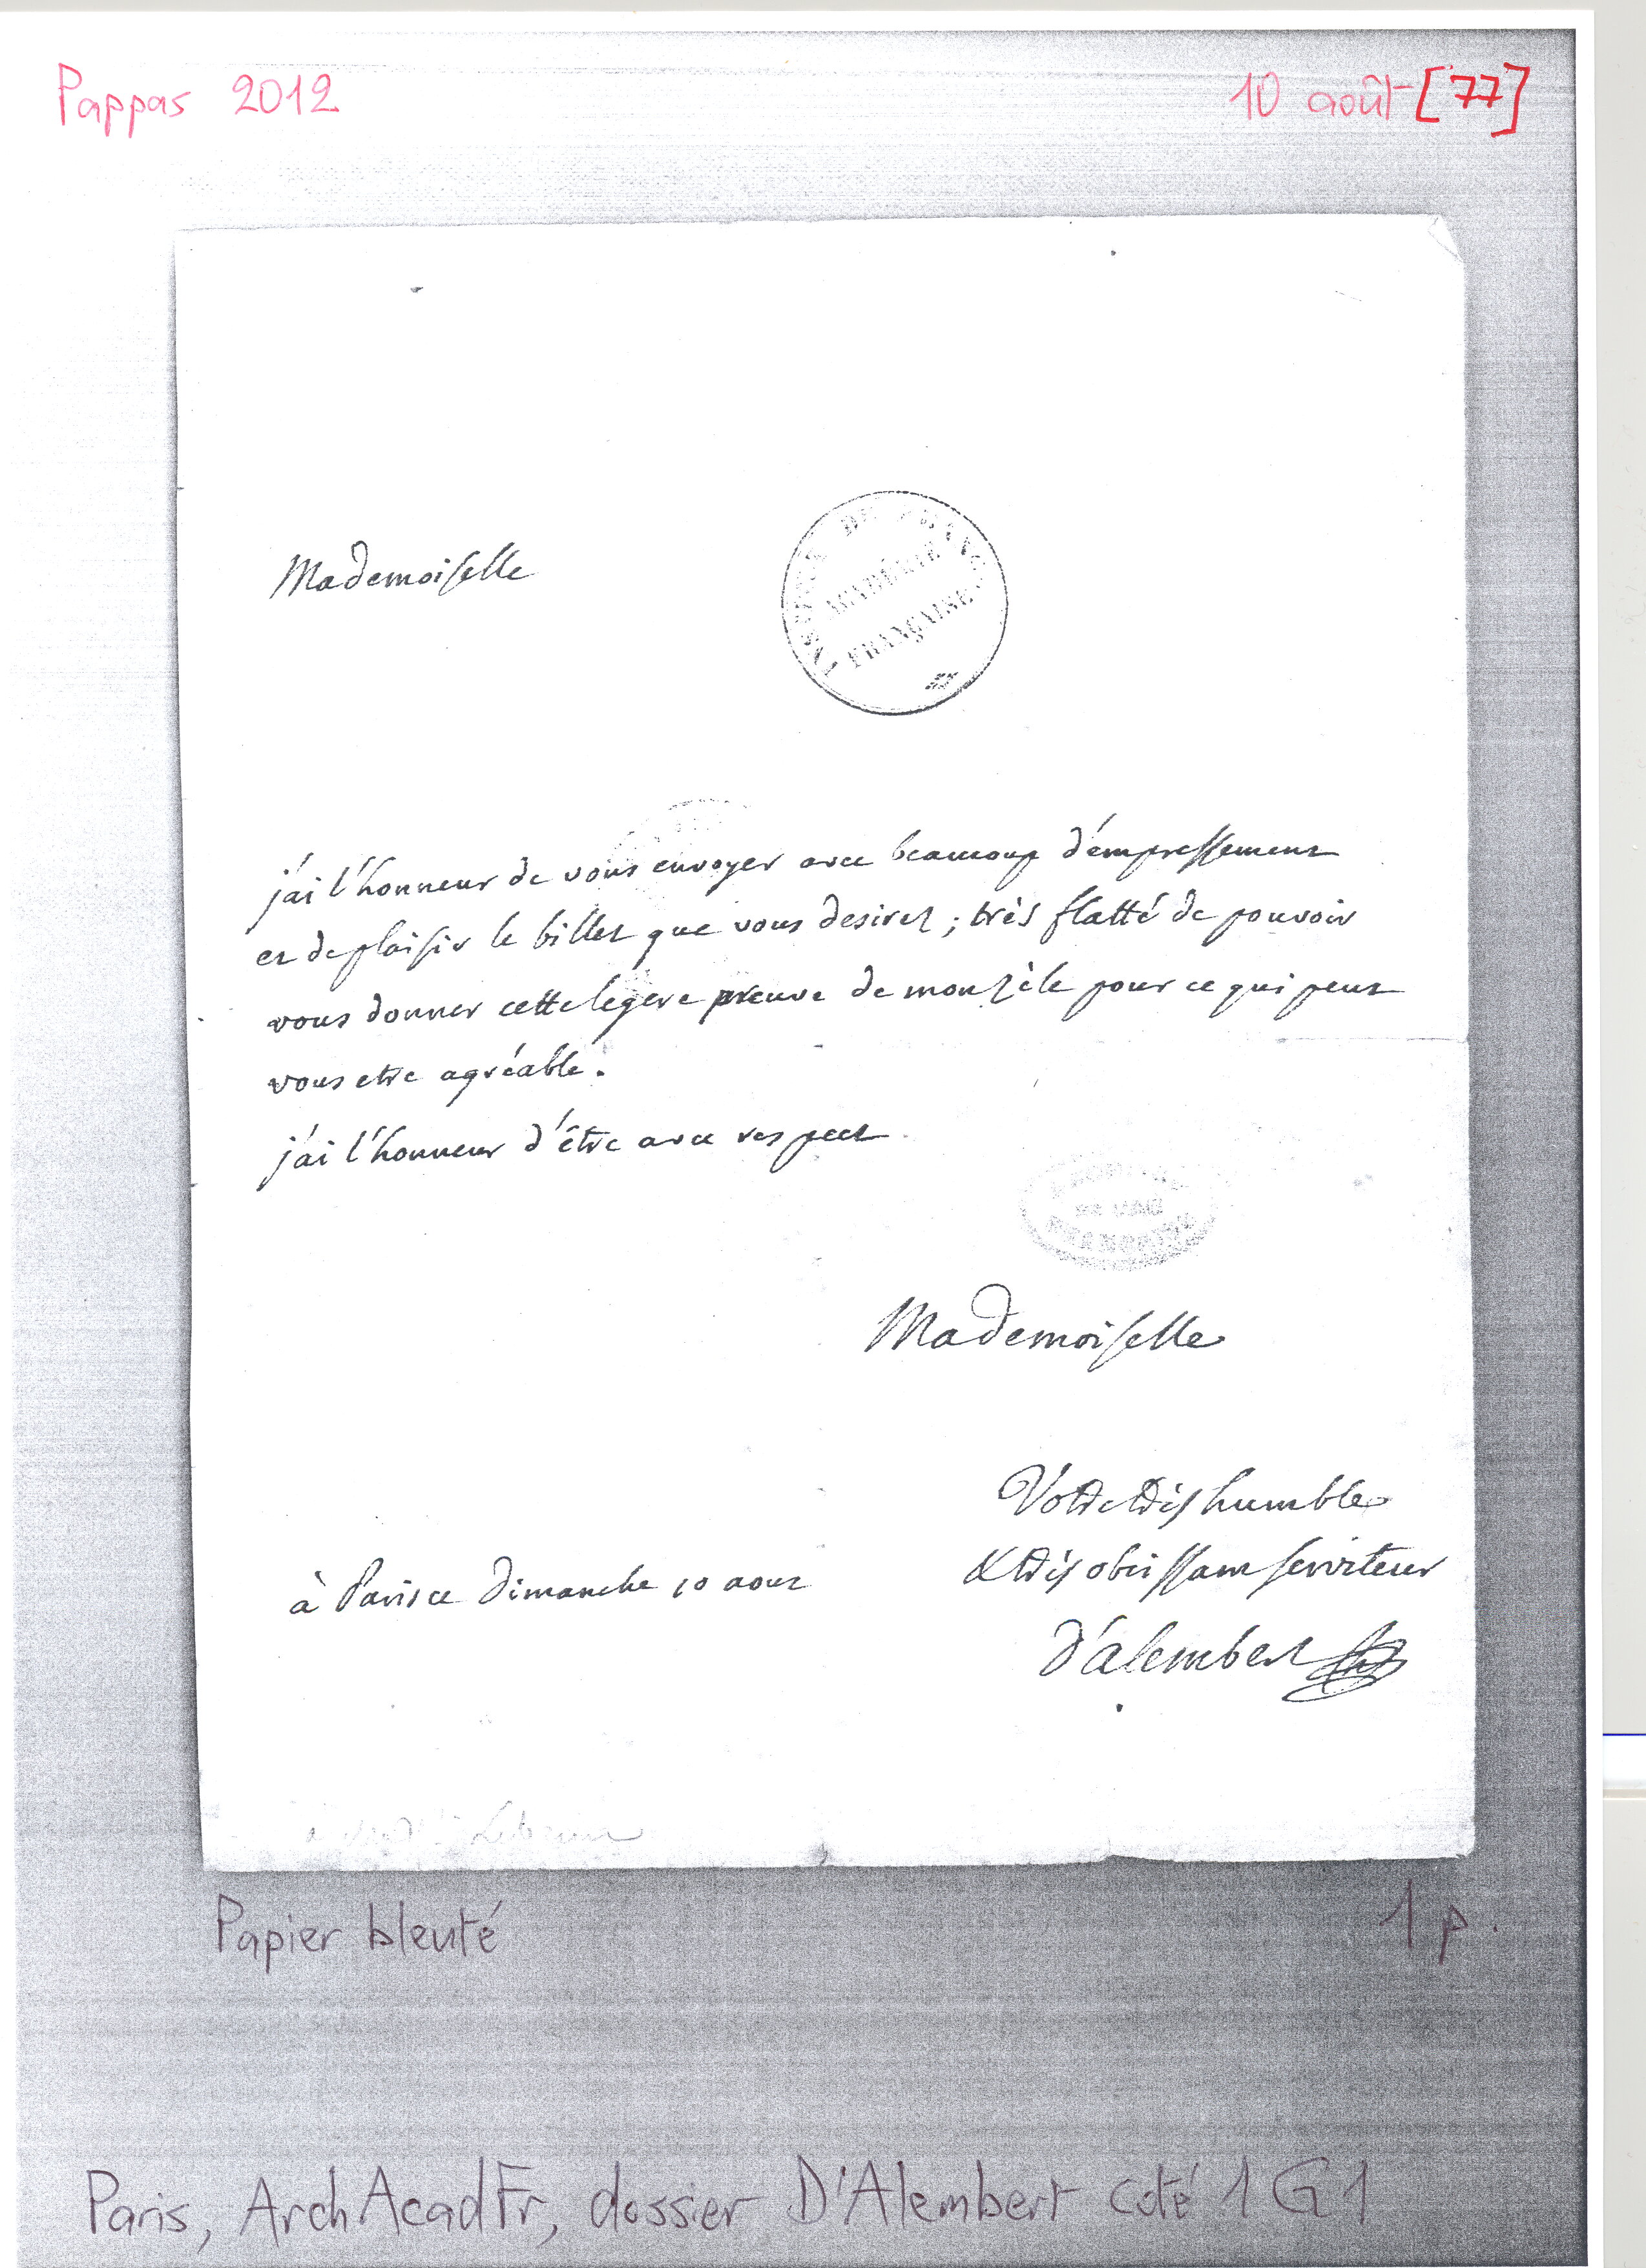 Pappas 2012
10 août [77]
INSTITUT DE FRANCE
ACADÉMIE
FRANÇAISE
Mademoiselle
j'ai l'honneur de vous envoyer avec beaucoup d'émpressement
et de plaisir le billet que vous desirez ; très flatté de pouvoir
vous donner cette legere preuve de mon zèle pour ce qui peut
vous etre agréable.
j'ai l'honneur d'être avec respect
Mademoiselle
Votre très humble
& très obeissant serviteur
à Paris ce Dimanche 10 aout
d'alembert
Papier bleuté
1 p.
Paris, ArchAcadFr, dossier D'Alembert coté 1 G 1